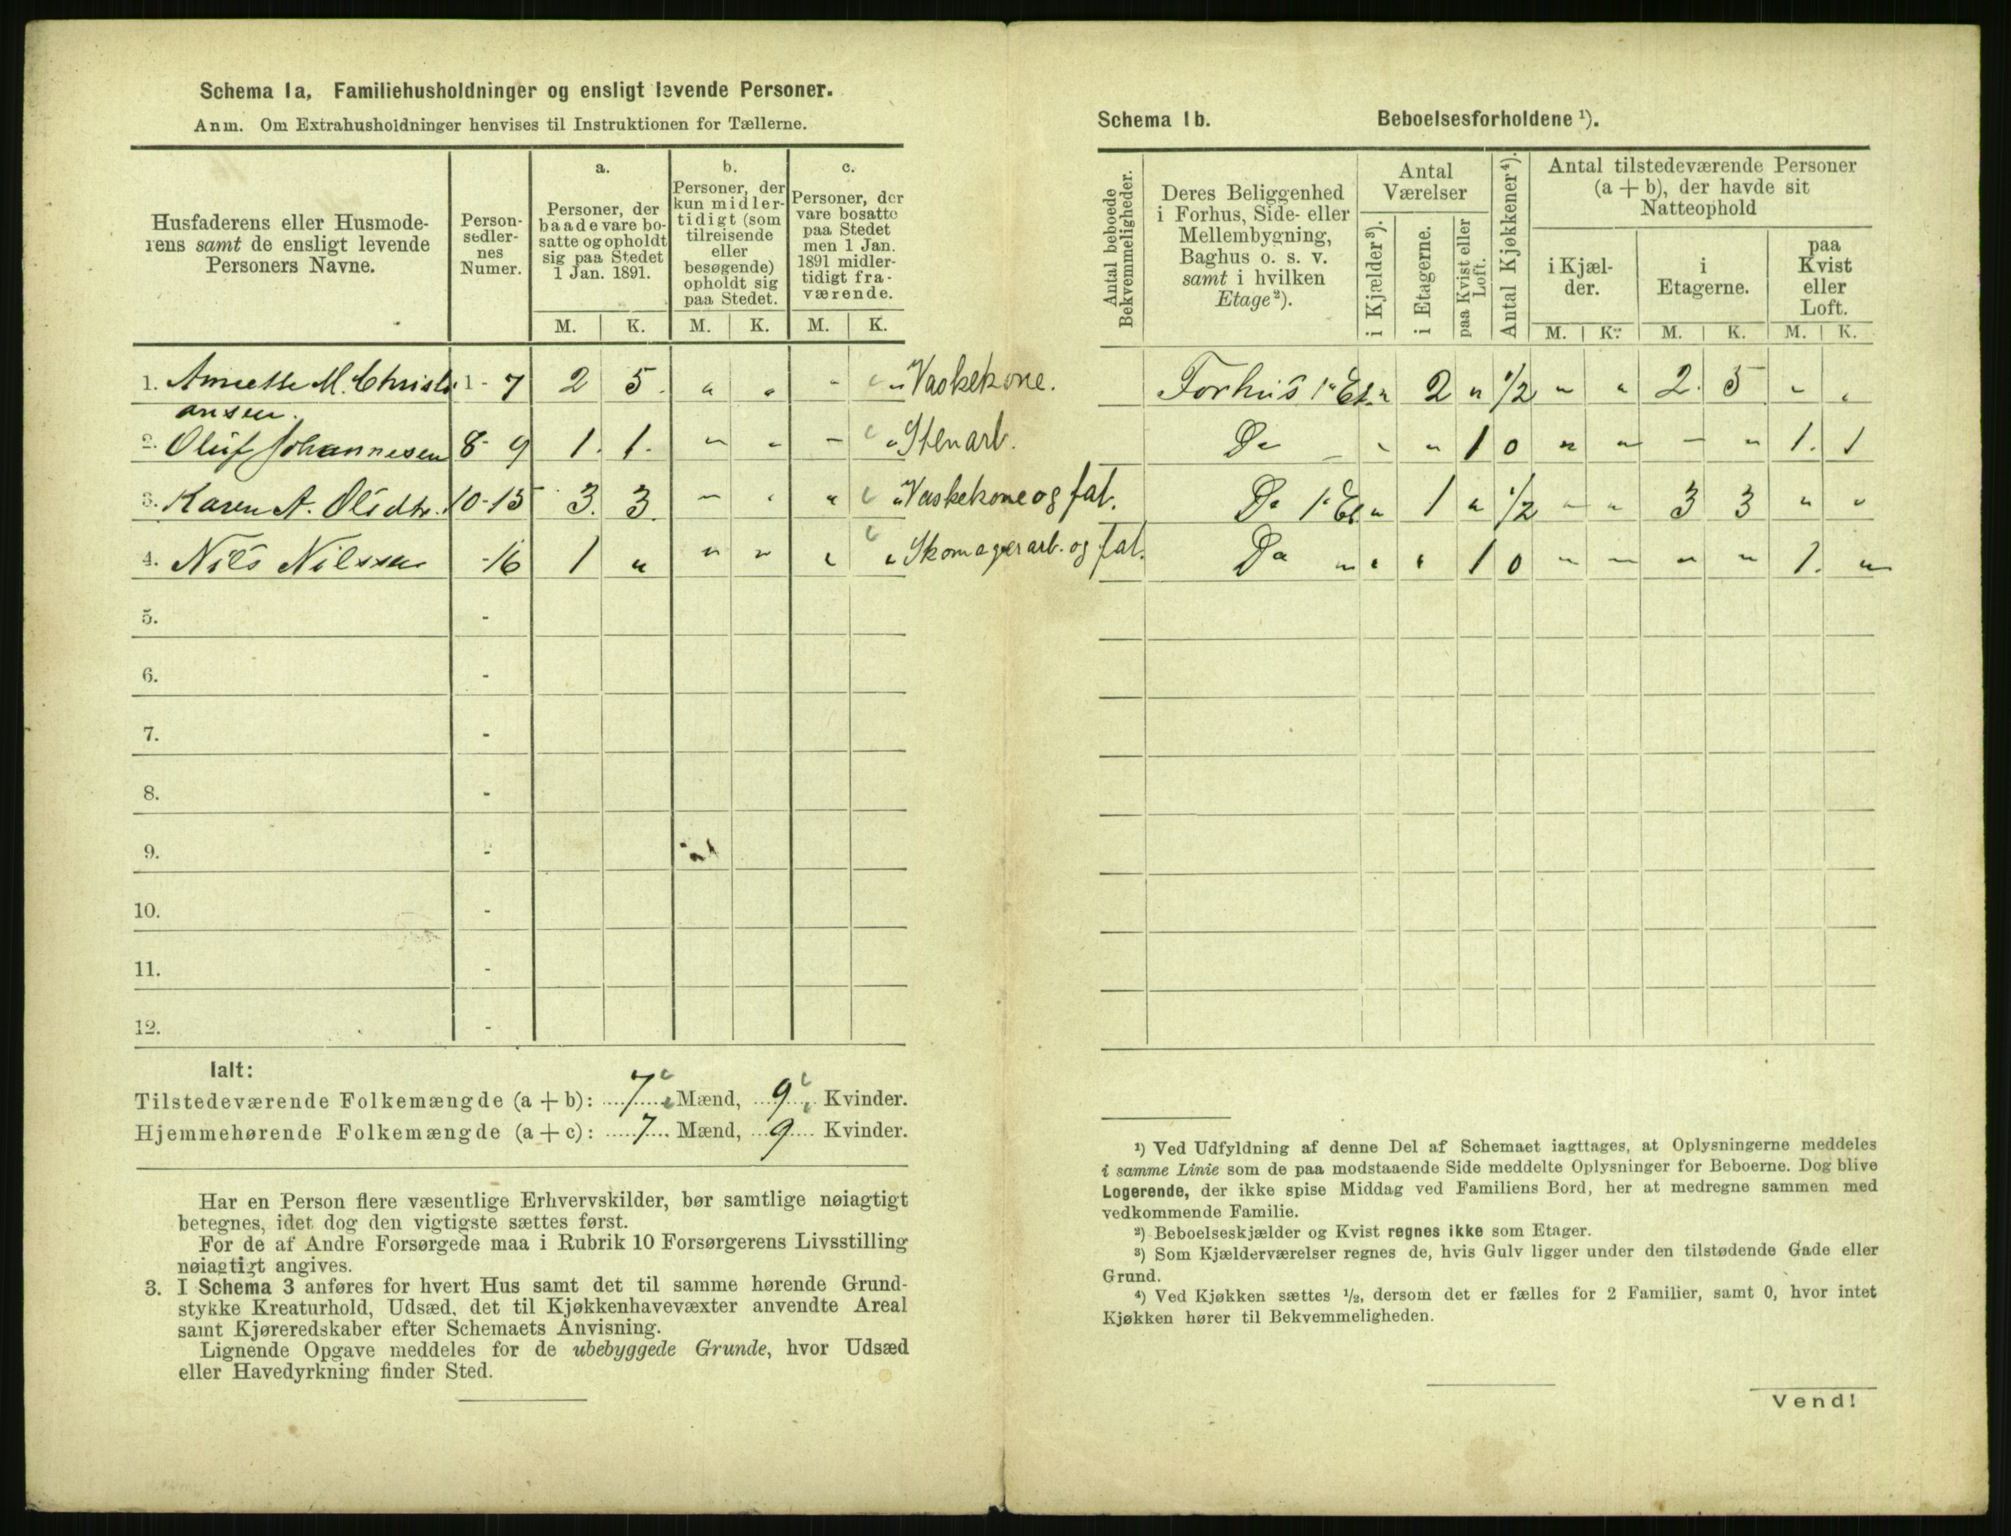 Schema 1a. Familiehusholdninger og ensligt levende Personer.
Anm. Om Extrahusholdninger henvises til Instruktionen for Tællerne.
Husfaderens eller Husmode-
rens samt de ensligt levende
Personers Navne.
Person-
sedler-
nes
Numer.
a.
Personer, der
baade vare bo-
satte og opholdt
sig paa Stedet
1 Jan. 1891.
M. K.
b.
Personer, der
kun midler-
tidigt (som
tilreisende
eller
besøgende)
opholdt sig
paa Stedet.
M. K.
c.
Personer, der
vare bosatte
paa Stedet
men 1 Jan.
1891 midler-
tidigt fra-
værende.
M. K.
1. Annette M. Christi 1 - 7 2 5. " " - " Vaskekone.
ansen.
2. Oluf Johannesen 8 - 9 1. 1. " " - " Stenarb.
3. Karen A. Olsdtr. 10 - 15 3. 3. " " " " Vaskekone og fat.
4. Nils Nilssen - 16 1 " " " " " Skomagerarb. og fat.
5. -
6. -
7. -
8. -
9. -
10. -
11. -
12. -
Ialt:
Tilstedeværende Folkemængde (a + b): 7 Mænd, 9 Kvinder.
Hjemmehørende Folkemængde (a + c): 7 Mænd, 9 Kvinder.
Har en Person flere væsentlige Erhvervskilder, bør samtlige nøiagtigt
betegnes, idet dog den vigtigste sættes først.
For de af Andre Forsørgede maa i Rubrik 10 Forsørgerens Livsstilling
nøiagtigt angives.
3. I Schema 3 anføres for hvert Hus samt det til samme hørende Grund-
stykke Kreaturhold, Udsæd, det til Kjøkkenhavevæxter anvendte Areal
samt Kjøreredskaber efter Schemaets Anvisning.
Lignende Opgave meddeles for de ubebyggede Grunde, hvor Udsæd
eller Havedyrkning finder Sted.
Schema 1b. Beboelsesforholdene ¹).
Antal beboede
Bekvemmeligheder.
Deres Beliggenhed
i Forhus, Side- eller
Mellembygning,
Baghus o. s. v.
samt i hvilken
Etage ²).
Antal
Værelser
i Kjælder ³).
i Etagerne.
paa Kvist eller
Loft.
Antal Kjøkkener ⁴).
Antal tilstedeværende Personer
(a + b), der havde sit
Natteophold
i Kjæl-
der.
M. K.
i
Etagerne.
M. K.
paa
Kvist
eller
Loft.
M. K.
Forhus 1ᵉ Et. " 2 " 1/2 " " 2. 5 " "
Do - " " 1 0 " " - " 1. 1
Do 1ᵉ Et " 1 " 1/2 " " 3 3 " "
Do " " " 1 0 " " " " 1. "
¹) Ved Udfyldning af denne Del af Schemaet iagttages, at Oplysningerne meddeles
i samme Linie som de paa modstaaende Side meddelte Oplysninger for Beboerne. Dog blive
Logerende, der ikke spise Middag ved Familiens Bord, her at medregne sammen med
vedkommende Familie.
²) Beboelseskjælder og Kvist regnes ikke som Etager.
³) Som Kjælderværelser regnes de, hvis Gulv ligger under den tilstødende Gade eller
Grund.
⁴) Ved Kjøkken sættes ½, dersom det er fælles for 2 Familier, samt 0, hvor intet
Kjøkken hører til Bekvemmeligheden.
Vend!